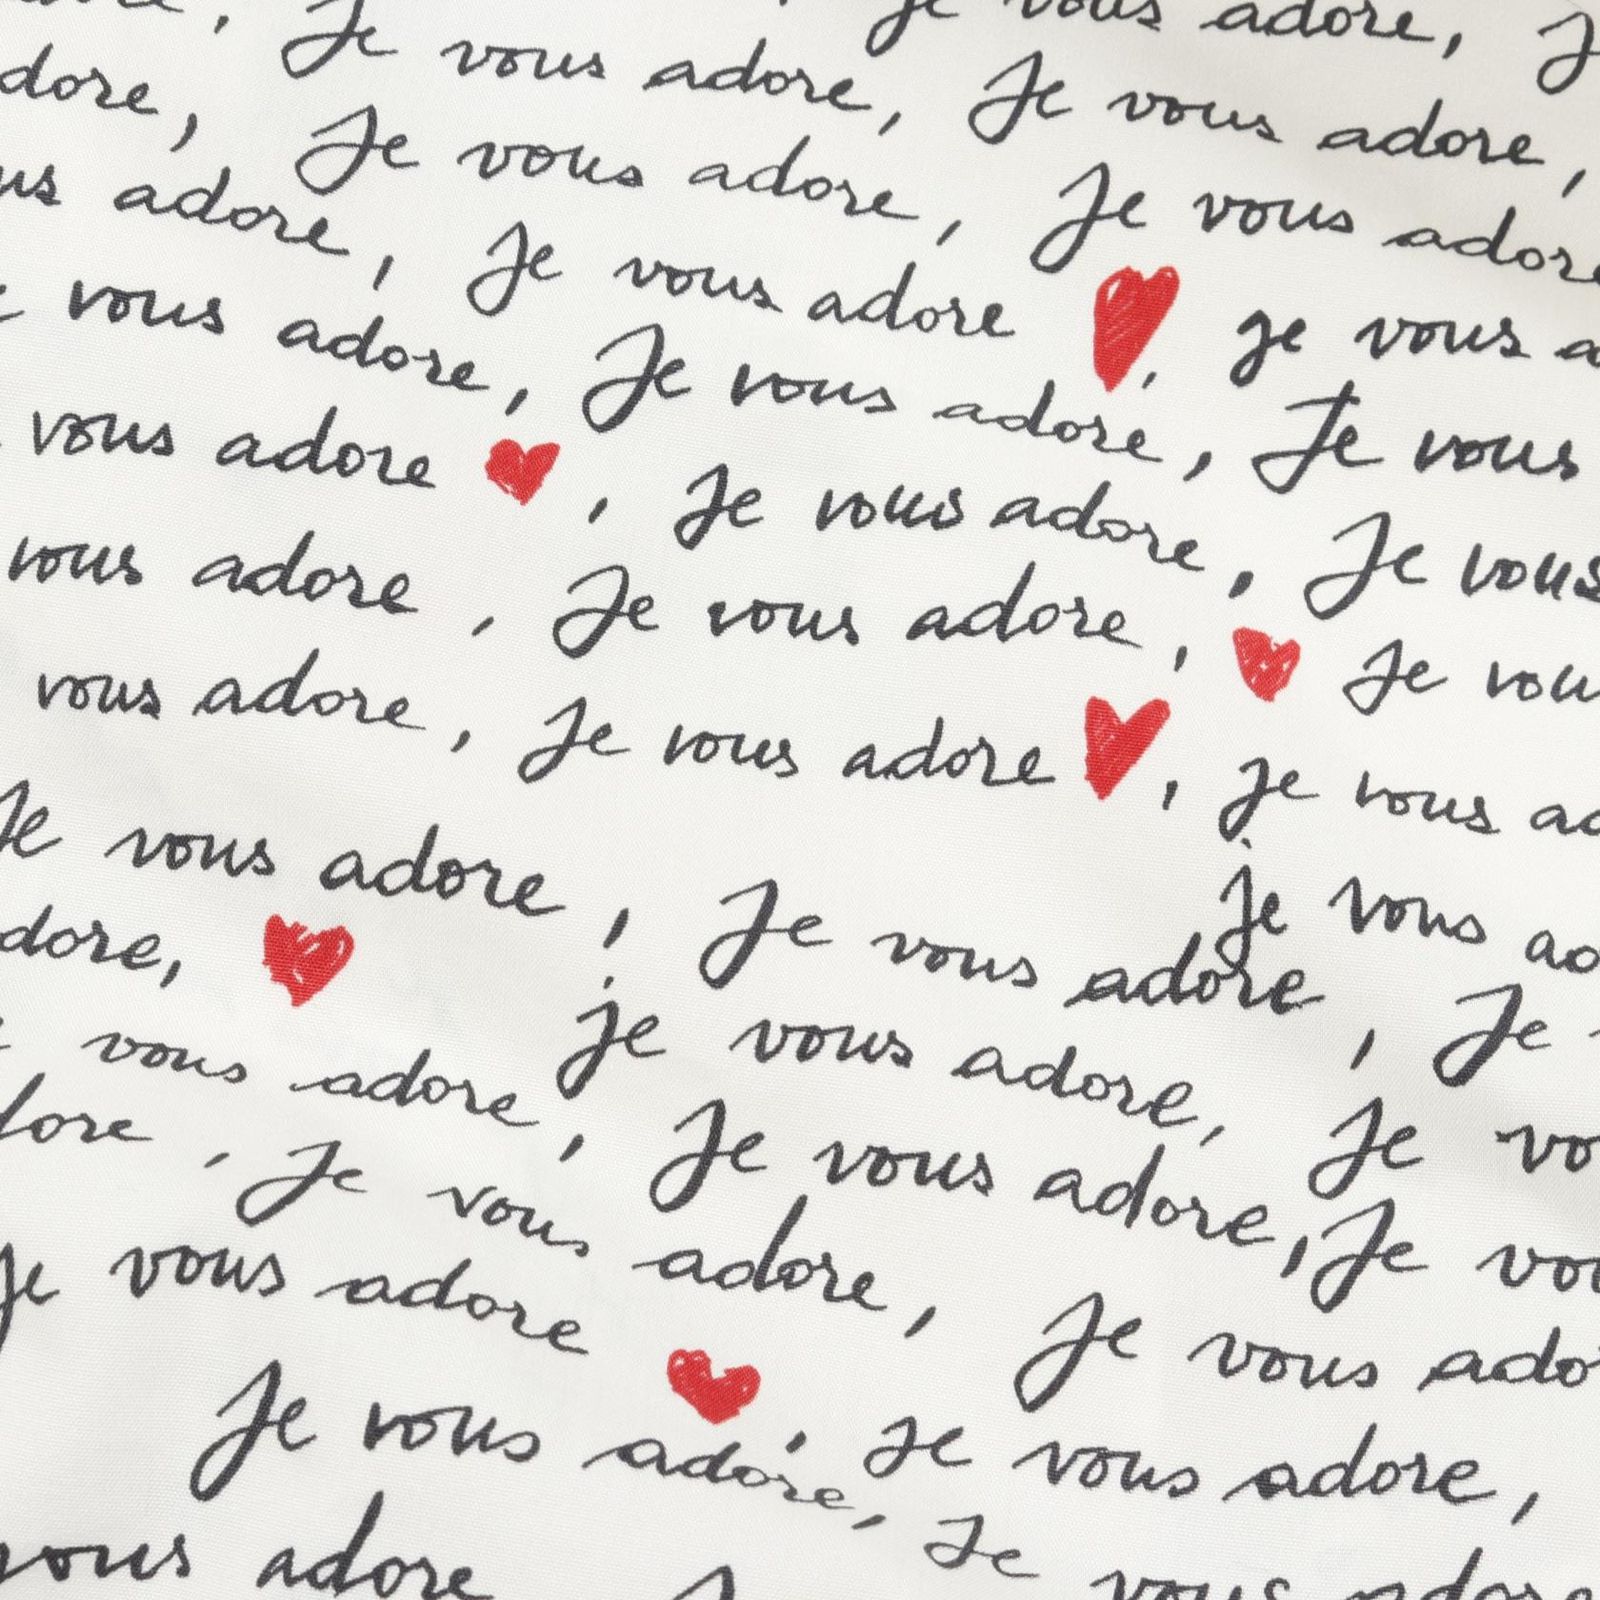 Je vous adore, J
adore, Je vous adore, Je vous adore,
adore, Je vous adore, Je vous adore
vous adore, Je vous adore, je vous a
vous adore, Je vous adore, Je vous
vous adore, Je vous adore, Je vous
vous adore, Je vous adore, Je vous
vous adore, Je vous adore, je vous ad
je vous ado
Je vous adore, Je vous adore, Je
adore, je vous adore, Je vo
vous adore, Je vous adore, Je vou
adore, Je vous adore, Je vous ador
je vous adore, Je vous adore,
Je vous adore, Je vous adore
vous adore